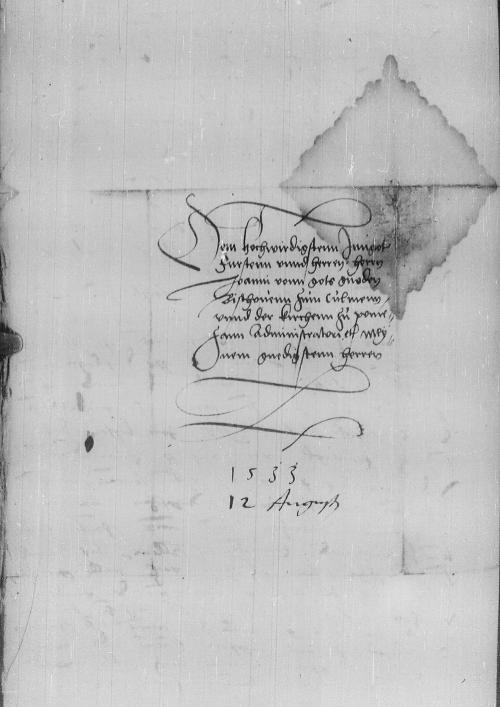 Dem hochwirdigstenn Inn got
Furstenn vnnd herren herrn
Joanni vonn gots gnaden
Bischouenn zům Culmenn
vnnd der kirchenn zů pome-
sann Administratori etc mey-
nem gnedigstenn herren
1533
12 August